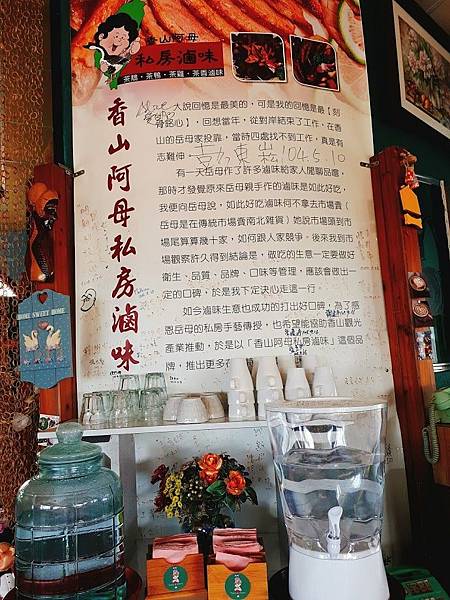 香山阿母
私房滷味
茶鵝・茶鴨・茶雞・茶香滷味
香山阿母私房滷味
大說回憶是最美的，可是我的回憶是最【刻
骨銘心】，回想當年，從對岸結束了工作，在香
山的岳母家投靠，當時四處找不到工作，真是有
志難伸
104.5.10
有一天岳母作了許多滷味給家人閒聊品嚐，
那時才發覺原來岳母親手作的滷味是如此好吃，
我便向岳母說，如此好吃滷味何不拿去市場賣（
岳母是在傳統市場賣南北雜貨）她說市場頭到市
場尾算算幾十家，如何跟人家競爭。後來我到市
場觀察許久得到結論是，做吃的生意一定要做好
衛生、品質、品牌、口味等管理，應該會做出一
定的口碑，於是我下定決心走這一行。
如今滷味生意也成功的打出好口碑，為了感
恩岳母的私房手藝傳授，也希望能協助香山觀光
產業推動，於是以「香山阿母私房滷味」這個品
牌，推出更多
HOME SWEET HOME